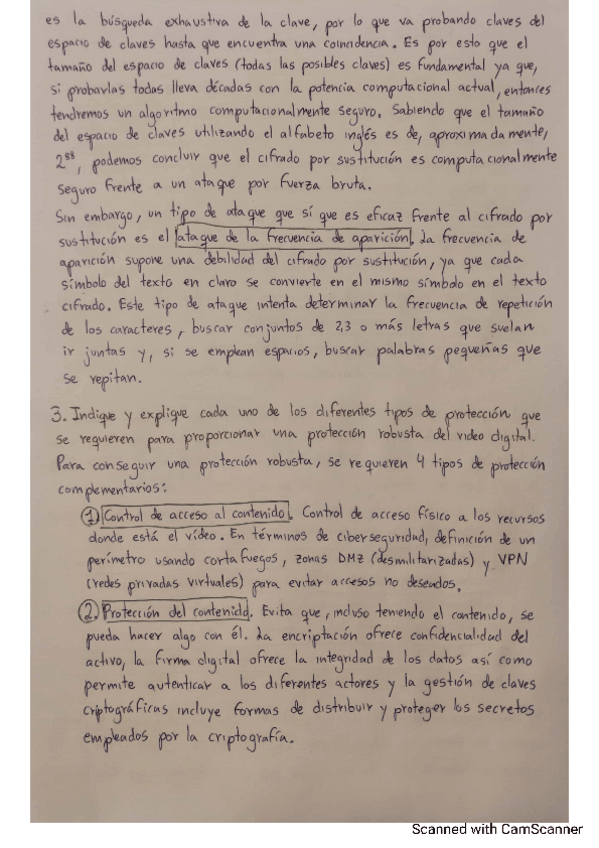 es la búsqueda exhaustiva de la clave, por lo que va probando claves del
espacio de claves hasta que encuentra una coincidencia. Es por esto que el
tamaño del espacio de claves (todas las posibles claves) es fundamental ya que,
si probarlas todas lleva décadas con la potencia computacional actual, entonces
tendremos un algoritmo computacionalmente seguro. Sabiendo que el tamaño
del espacio de claves utilizando el alfabeto inglés es de, aproximadamente,
2⁸⁸, podemos concluir que el cifrado por sustitución es computacionalmente
seguro frente a un ataque por fuerza bruta.
Sin embargo, un tipo de ataque que sí que es eficaz frente al cifrado por
sustitución es el ataque de la frecuencia de aparición. La frecuencia de
aparición supone una debilidad del cifrado por sustitución, ya que cada
símbolo del texto en claro se convierte en el mismo símbolo en el texto
cifrado. Este tipo de ataque intenta determinar la frecuencia de repetición
de los caracteres, buscar conjuntos de 2,3 o más letras que suelan
ir juntas y, si se emplean espacios, buscar palabras pequeñas que
se repitan.
3. Indique y explique cada uno de los diferentes tipos de protección que
se requieren para proporcionar una protección robusta del video digital.
Para conseguir una protección robusta, se requieren 4 tipos de protección
complementarios:
1) Control de acceso al contenido. Control de acceso físico a los recursos
donde está el vídeo. En términos de ciberseguridad, definición de un
perímetro usando cortafuegos, zonas DMZ (desmilitarizadas) y VPN
(redes privadas virtuales) para evitar accesos no deseados.
2. Protección del contenido. Evita que, incluso teniendo el contenido, se
pueda hacer algo con él. La encriptación ofrece confidencialidad del
activo, la firma digital ofrece la integridad de los datos así como
permite autenticar a los diferentes actores y la gestión de claves
criptográficas incluye formas de distribuir y proteger los secretos
empleados por la criptografía.
Scanned with CamScanner